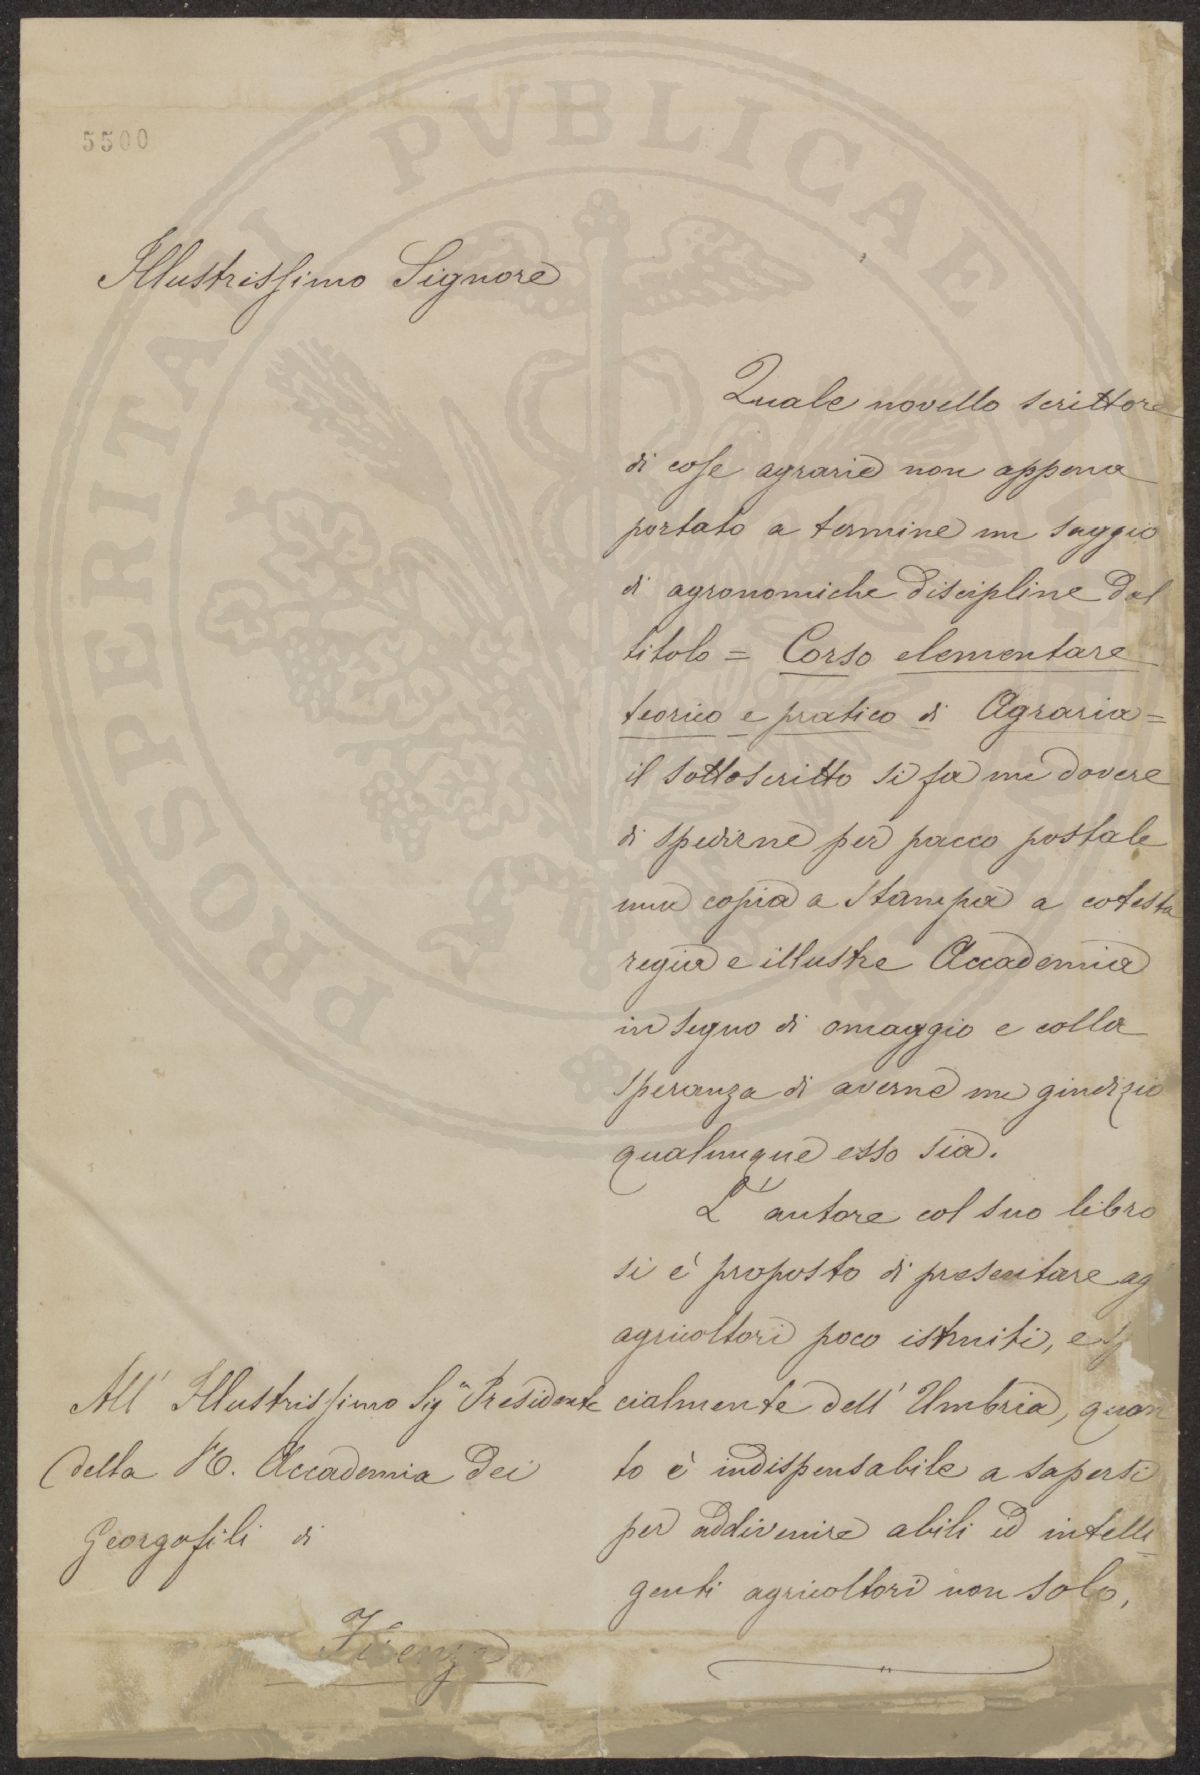 PROSPERITATI PVBLICAE
5500
Illustrissimo Signore
Quale novello scrittore
di cose agrarie non appena
portato a termine un saggio
di agronomiche discipline dal
titolo = Corso elementare
teorico e pratico di Agraria =
il sottoscritto si fa un dovere
di spedirne per pacco postale
una copia a stampa a cotesta
regia e illustre Accademia
in segno di omaggio e colla
speranza di averne un giudizio
qualunque esso sia.
L'autore col suo libro
si è proposto di presentare ag
agricoltori poco istruiti, e sp
cialmente dell'Umbria, quan
to è indispensabile a sapersi
per addivenire abili ed intelli
genti agricoltori non solo,
All' Illustrissimo Sigr Presidente
della R. Accademia dei
Georgofili di
Firenze